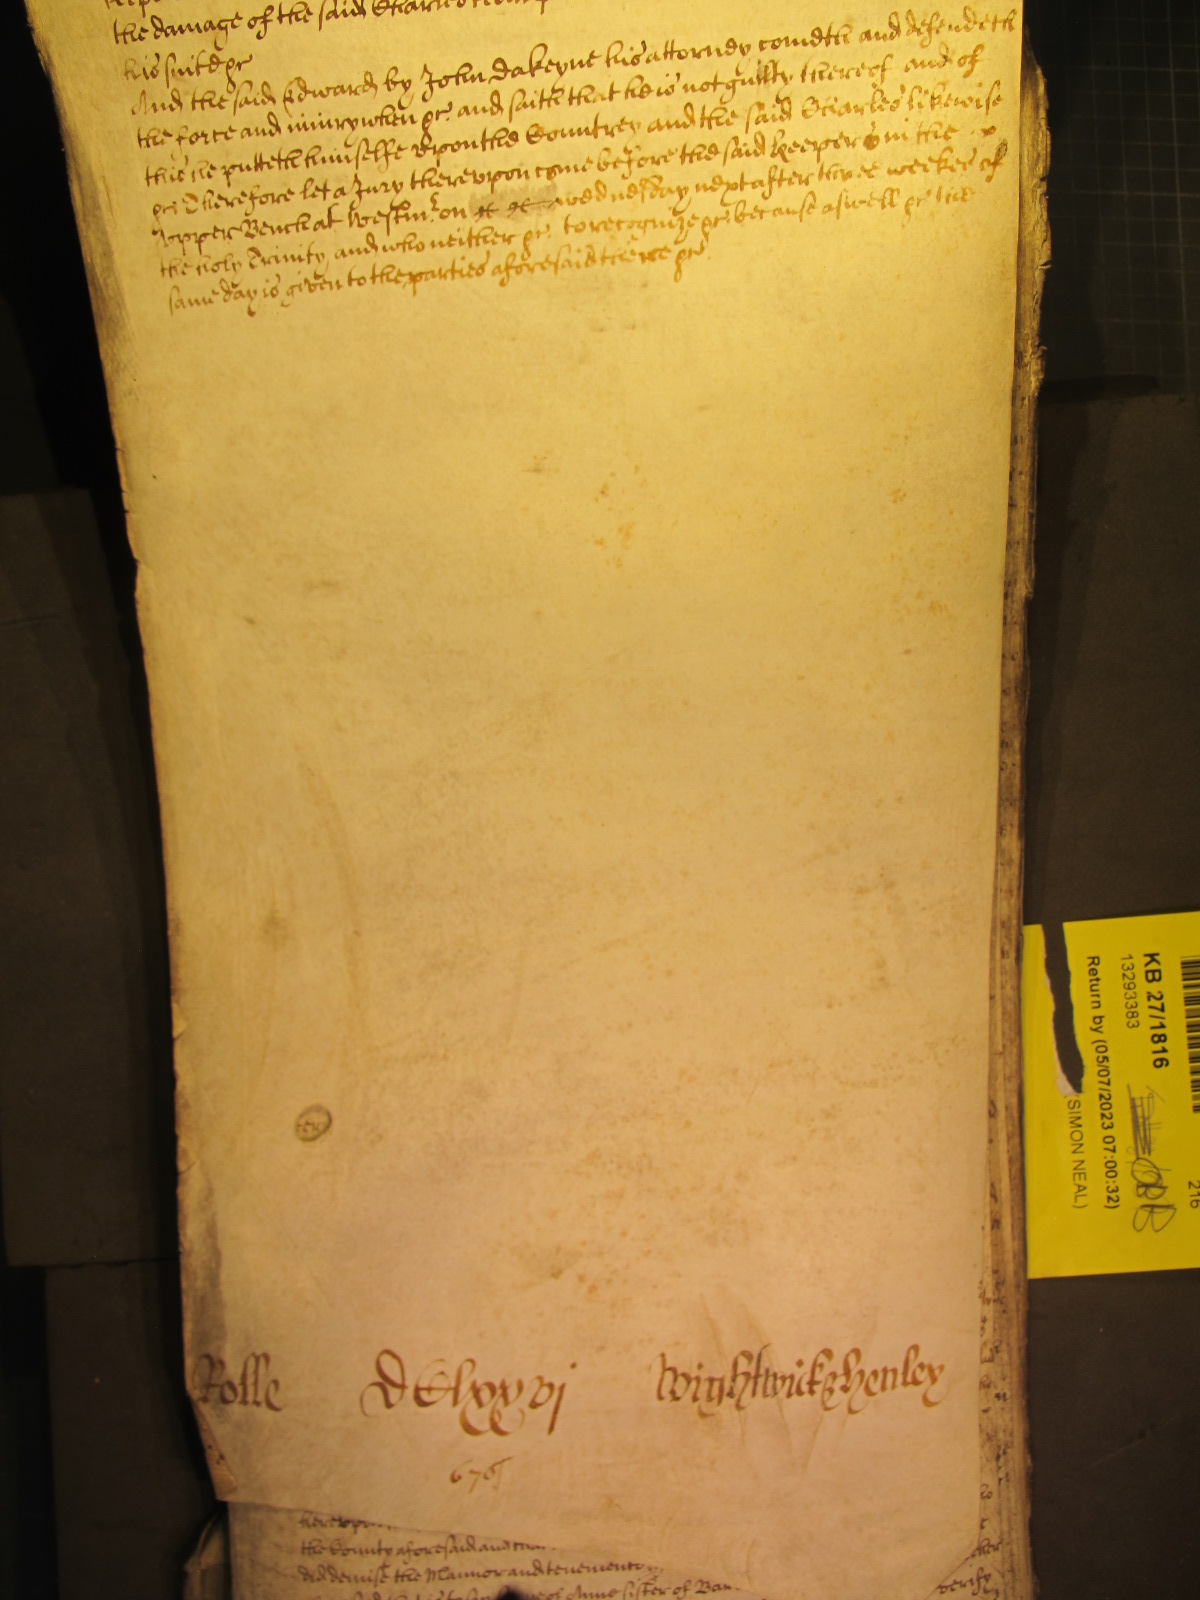 the damage of the said Charles
his suite &c
And the said Edward by John Dakeyne his attorney cometh and defendeth
the force and iniury when &c and saith that he is not guilty thereof and of
this he putteth himselfe vpon the Countrey and the said Charles likewise
&c Therefore let a Jury therevpon come before the said Keepers in the
vpper Bench at Westmr on wednesday next after three weekes of
the holy Trinity and who neither &c to recognize &c because aswell &c the
same day is given to the parties aforesaid there &c
Rolle DClxxvj Wightwick & Henley
676
the County aforesaid and
did demise the Mannor and tenements
of Anne sister of
verify
KB 27/1816
13293383
Return by (05/07/2023 07:00:32)
(SIMON NEAL)
216